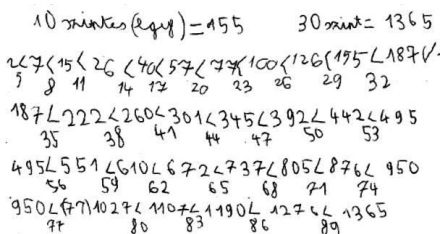 10 szintes (egy) = 155 30 szint = 1365
2<7<15<26<40<57<77<100<126(155<187(/
5 8 11 14 17 20 23 26 29 32
187<222<260<301<345<392<442<495
35 38 41 44 47 50 53
495<551<610<672<737<805<876< 950
56 59 62 65 68 71 74
950<(77)1027<1107<1190< 1276< 1365
77 80 83 86 89